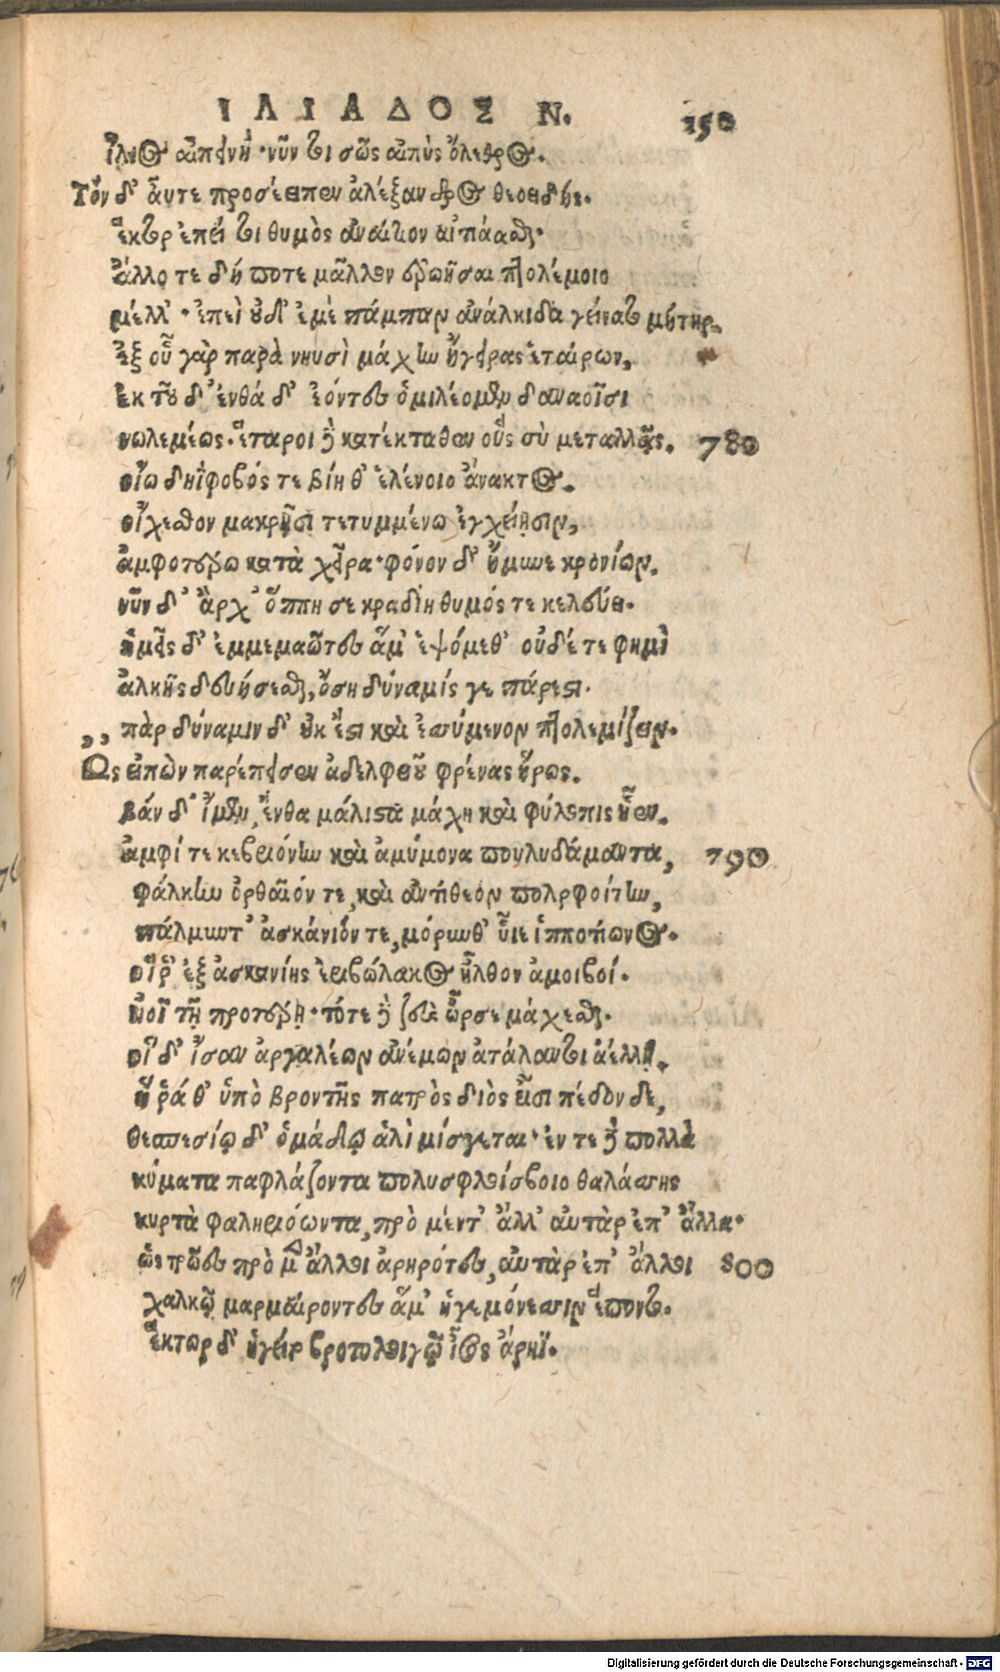 ΙΛΙΑΔΟΣ Ν. 150
ἴλιος αἰπεινή· νῦν τοι σῶς αἰπὺς ὄλεθρος.
Τὸν δ' αὖτε προσέειπεν ἀλέξανδρος θεοειδής.
ἕκτορ ἐπεί τοι θυμὸς ἀναίτιον αἰτιάασθαι·
ἄλλοτε δή ποτε μᾶλλον ἐρωῆσαι πτολέμοιο
μέλλω· ἐπεὶ οὐδ' ἐμὲ πάμπαν ἀνάλκιδα γείνατο μήτηρ.
ἐξ οὗ γὰρ παρὰ νηυσὶ μάχην ἤγειρας ἑταίρων,
ἐκ τοῦ δ' ἐνθά δ' ἐόντες ὁμιλέομεν δαναοῖσι
νωλεμέως· ἕταροι δὲ κατέκταθεν οὓς σὺ μεταλλᾷς. 780
οἴω δηΐφοβός τε βίη θ' ἑλένοιο ἄνακτος.
οἴχεσθον μακρῇσι τετυμμένω ἐγχείῃσιν,
ἀμφοτέρω κατὰ χεῖρα· φόνον δ' ἤμυνε κρονίων.
νῦν δ' ἄρχ' ὅππη σε κραδίη θυμός τε κελεύει·
ἡμεῖς δ' ἐμμεμαῶτες ἅμ' ἑψόμεθ' οὐδέ τε φημὶ
ἀλκῆς δευήσεσθαι, ὅση δύναμίς γε πάρεστι·
πὰρ δύναμιν δ' οὐκ ἔστι καὶ ἐσσύμενον πτολεμίζειν.
Ὣς εἰπὼν παρέπεισεν ἀδελφειοῦ φρένας ἥρως.
βὰν δ' ἴμεν, ἔνθα μάλιστα μάχη καὶ φύλοπις ἦεν.
ἀμφί τε κεβριόνην καὶ ἀμύμονα πουλυδάμαντα, 790
φάλκην ὀρθαῖόν τε, καὶ ἀντίθεον πολυφοίτην,
πάλμυντ' ἀσκάνιόν τε, μόρυνθ' υἷε ἱπποτίωνος.
οἵ ῥ' ἐξ ἀσκανίης ἐριβώλακος ἦλθον ἀμοιβοί.
ἠοῖ τῇ προτέρῃ· τότε δὲ ζεὺς ὦρσε μάχεσθαι.
οἱ δ' ἴσαν ἀργαλέων ἀνέμων ἀτάλαντοι ἀέλλῃ.
ἥ ῥά θ' ὑπὸ βροντῆς πατρὸς διὸς εἶσι πέδον δε,
θεσπεσίῳ δ' ὁμάδῳ ἁλὶ μίσγεται· ἐν τε δὲ πολλὰ
κύματα παφλάζοντα πολυσφλοίσβοιο θαλάσσης
κυρτὰ φαληριόωντα, πρὸ μέν τ' ἄλλ' αὐτὰρ ἐπ' ἄλλα·
ὣς τρῶες πρὸ μὲν ἄλλοι ἀρηρότες, αὐτὰρ ἐπ' ἄλλοι 800
χαλκῷ μαρμαίροντες ἅμ' ἡγεμόνεσσιν ἕποντο.
ἕκτωρ δ' ἡγεῖτο βροτολοιγῷ ἶσος ἄρηϊ.
Digitalisierung gefördert durch die Deutsche Forschungsgemeinschaft - DFG